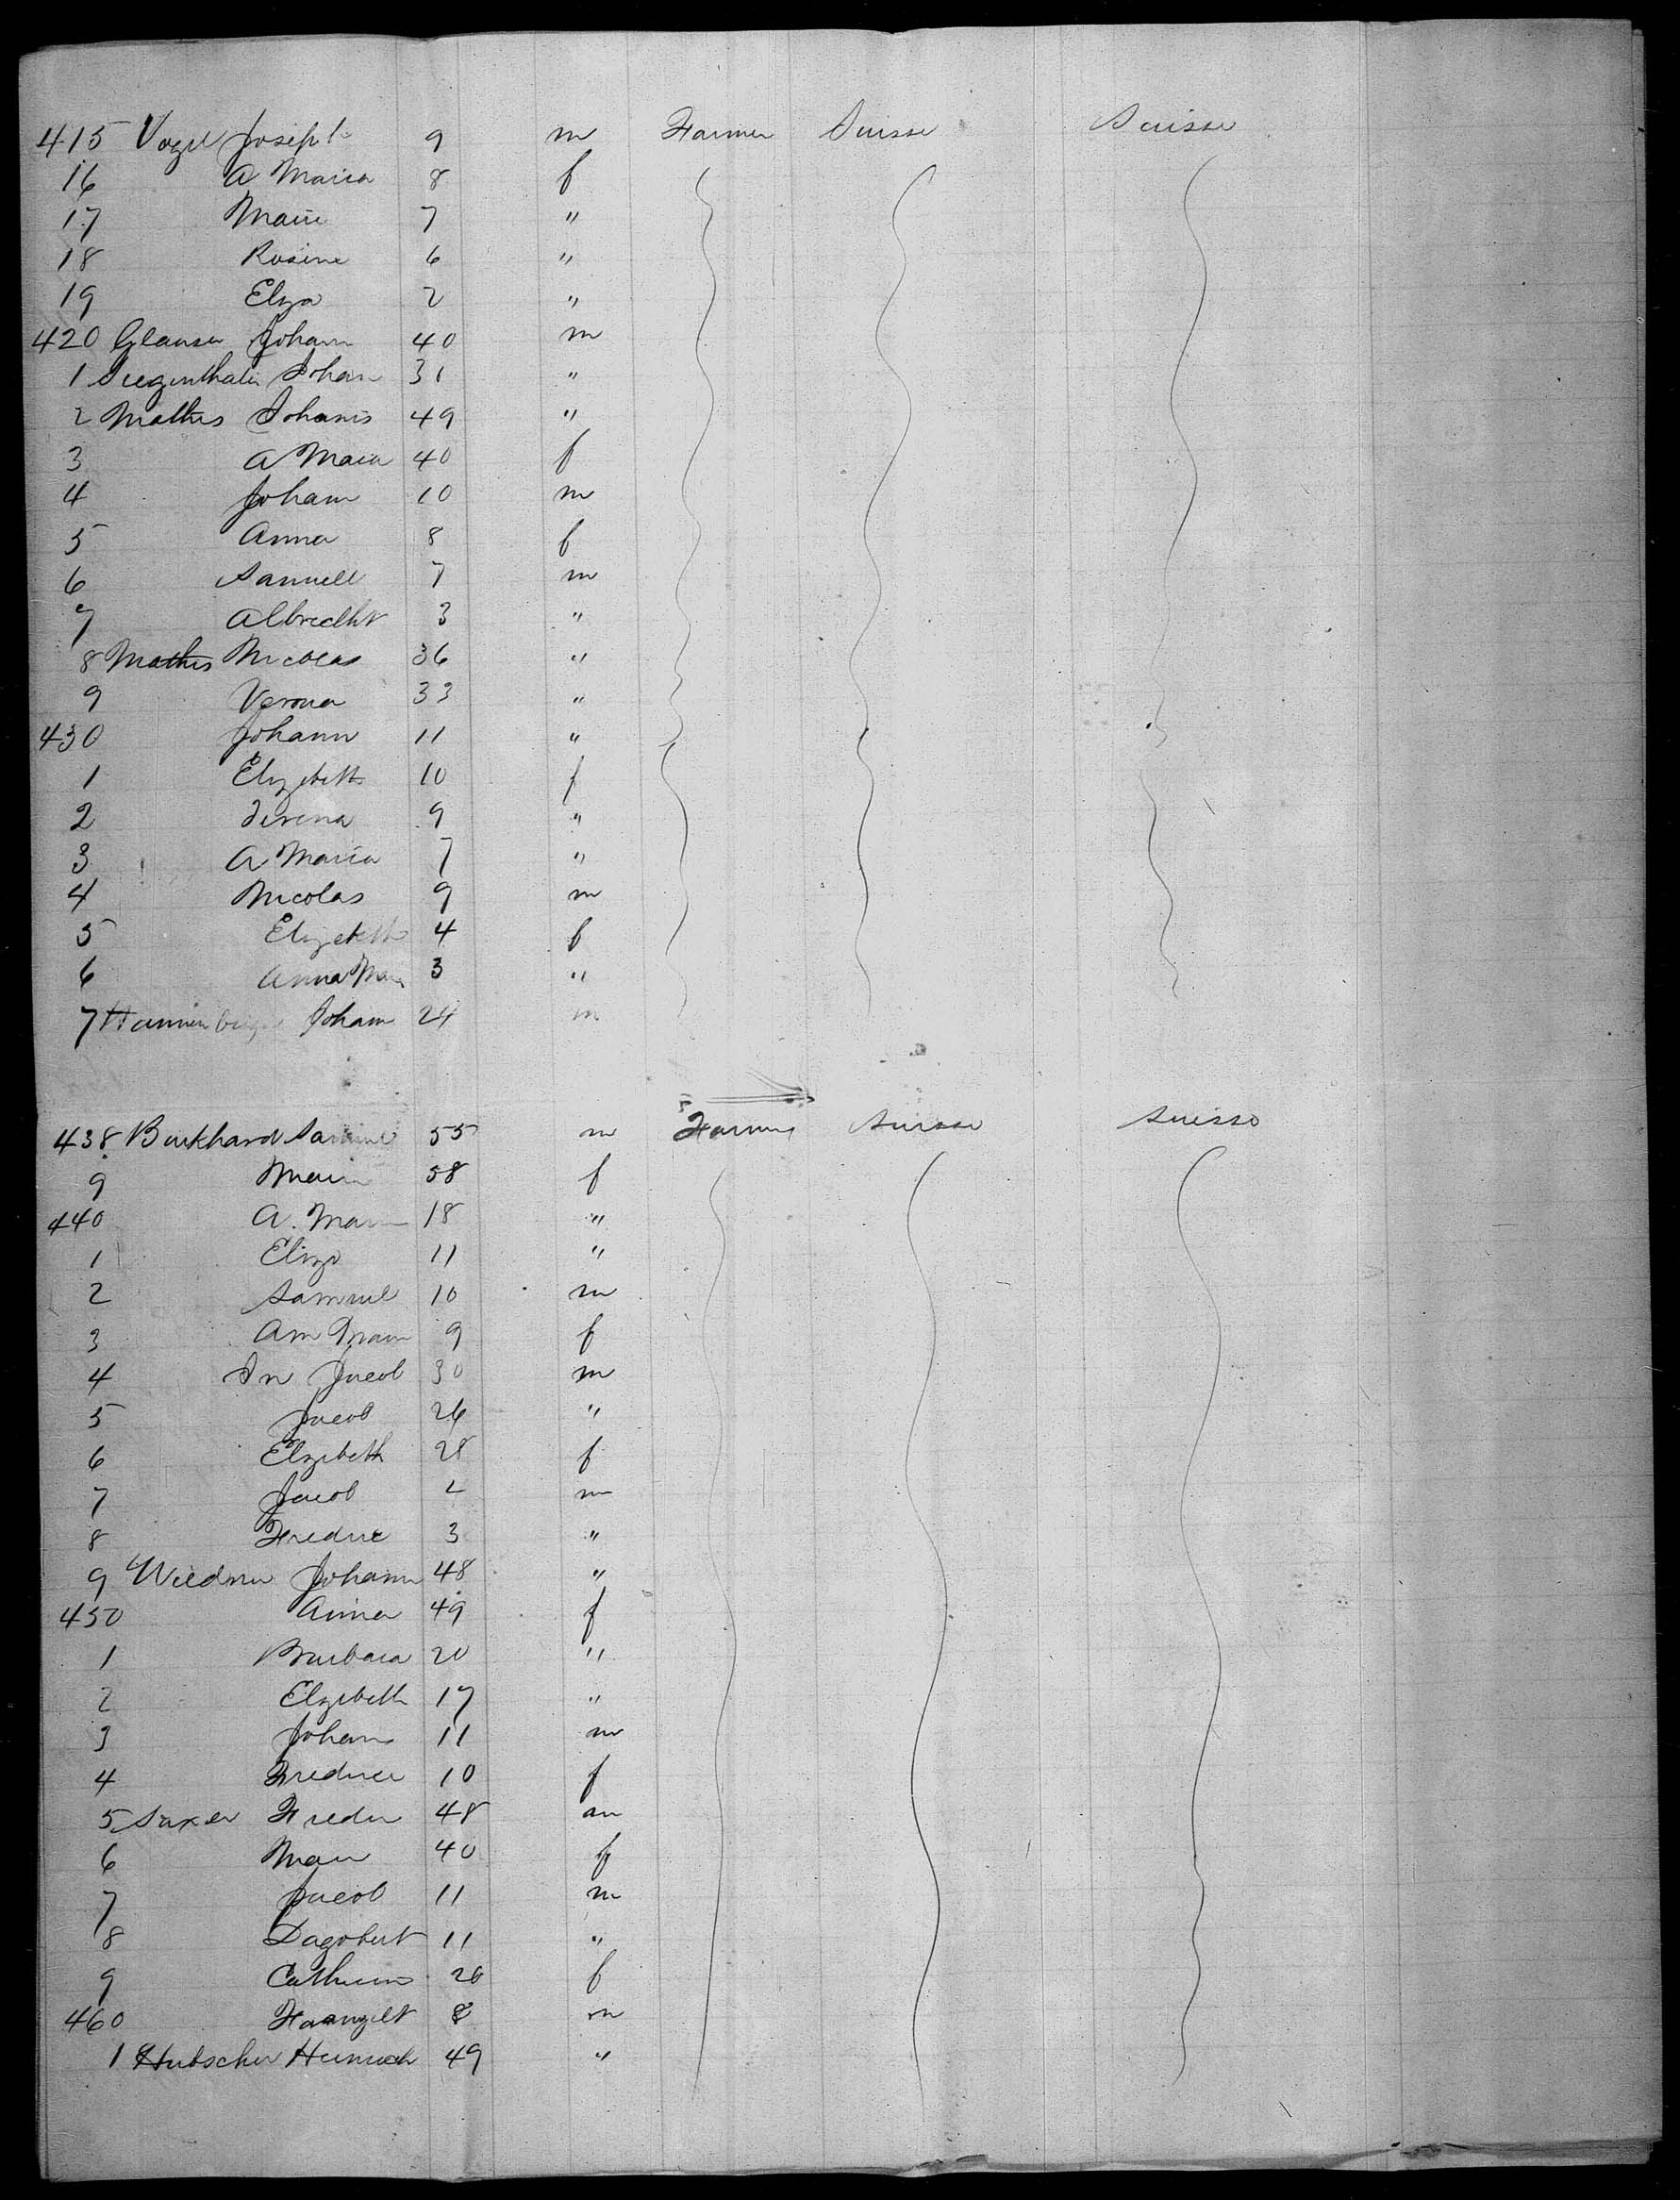 415 Vogel Joseph 9 m Farmer Suisse Suisse
16 A Maria 8 f
17 Marie 7 "
18 Rosine 6 "
19 Elza 2 "
420 Glauser Johann 40 m
1 Siegenthaler Johan 31 "
2 Mathis Johanis 49 "
3 A Maria 40 f
4 Johann 10 m
5 Anna 8 f
6 Samuell 7 m
7 Albrecht 3 "
8 Mathis Nicolas 36 "
9 Verona 33 "
430 Johann 11 "
1 Elizebeth 10 f
2 Verena 9 "
3 A Maria 7 "
4 Nicolas 9 m
5 Elizebeth 4 f
6 Anna Maria 3 "
7 Johann 24 m
438 Burkhard Samuel 55 m Farmer Suisse Suisse
9 Maria 58 f
440 A. Maria 18 "
1 Eliza 11 "
2 Samuel 10 m
3 Am Maria 9 f
4 Jn Jacob 30 m
5 Jacob 26 "
6 Elzebeth 28 f
7 Jacob 2 m
8 3 "
9 Wiedmer Johann 48 "
450 Anna 49 f
1 Barbara 20 "
2 Elzebeth 17 "
3 Johann 11 m
4 10 f
5 Saxer 48 m
6 Maria 40 f
7 Jacob 11 m
8 Dagobert 11 "
9 f
460 8 m
1 Hubscher Heinrich 49 "